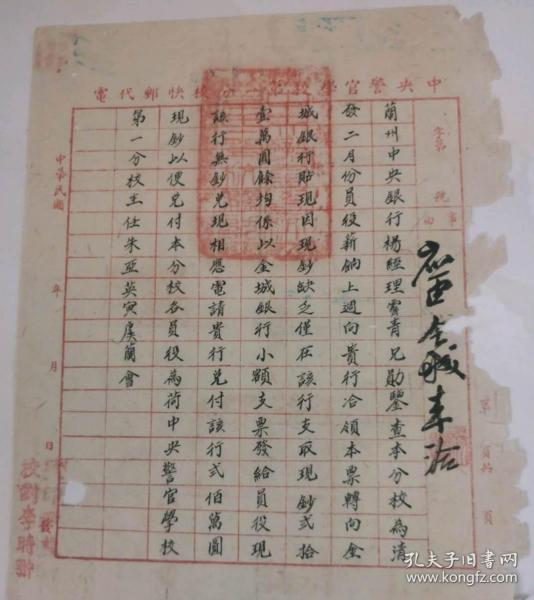 中央警官學校第一分校快郵代電
字第 號
事由
蘭州中央銀行楊經理霽青兄勛鑒查本分校為清
發二月份員役薪餉上週向貴行洽領本票轉向金
城銀行貼現因現鈔缺乏僅在該行支取現鈔弍拾
壹萬圓餘均係以金城銀行小額支票發給員役現
該行無鈔兌現相應電請貴行兌付該行弍佰萬圓
現鈔以便兌付本分校各員役為荷中央警官學校
第一分校主任朱亞英寅虞蘭會
中華民國 年 月 日
校對李時
第 頁共 頁
金城来洽
孔夫子旧书网
www.kongfz.com